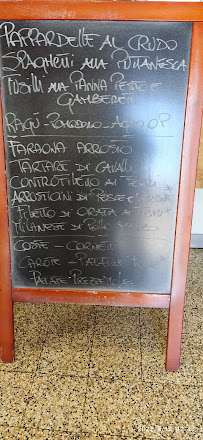 PAPPARDELLE AL CRUDO
SPAGHETTI ALLA PUTTANESCA
FUSILLI ALLA PANNA PESTO E
GAMBERETTI
RAGÙ - POMODORO - AGLIO OP
FARAONA ARROSTO
TARTARE DI CAVALLO
CONTROFILETTO AI FERRI
ARROSTICINI DI PESCE
FILETTO DI ORATA AI FERRI
MILANESE DI POLLO
COSTE - CORNETTI
CAROTE - PATATINE
PATATE PREZZEMOLATE